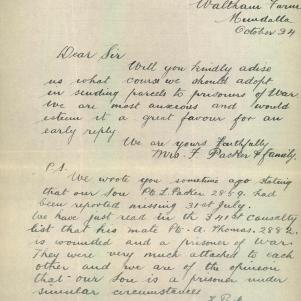 Waltham Farm
Mindalla
October 24
Dear Sir
Will you kindly adise
us what course we should adopt
in sending parcels to prisoners of War.
We are most anxious and would
esteem it a great favour for an
early reply
We are yours Faithfully
Mrs. F Packer & family.
P.S.
We wrote you sometime ago stating
that our Son Pte L. Packer 2859. had
been reported missing 31st July.
We have just read in the 341st Causalty
list that his mate Pte. A. Thomas. 2882.
is wounded and a prisoner of War.
They were very much attached to each
other and we are of the opinion
that our Son is a prisoner under
simular circumstances